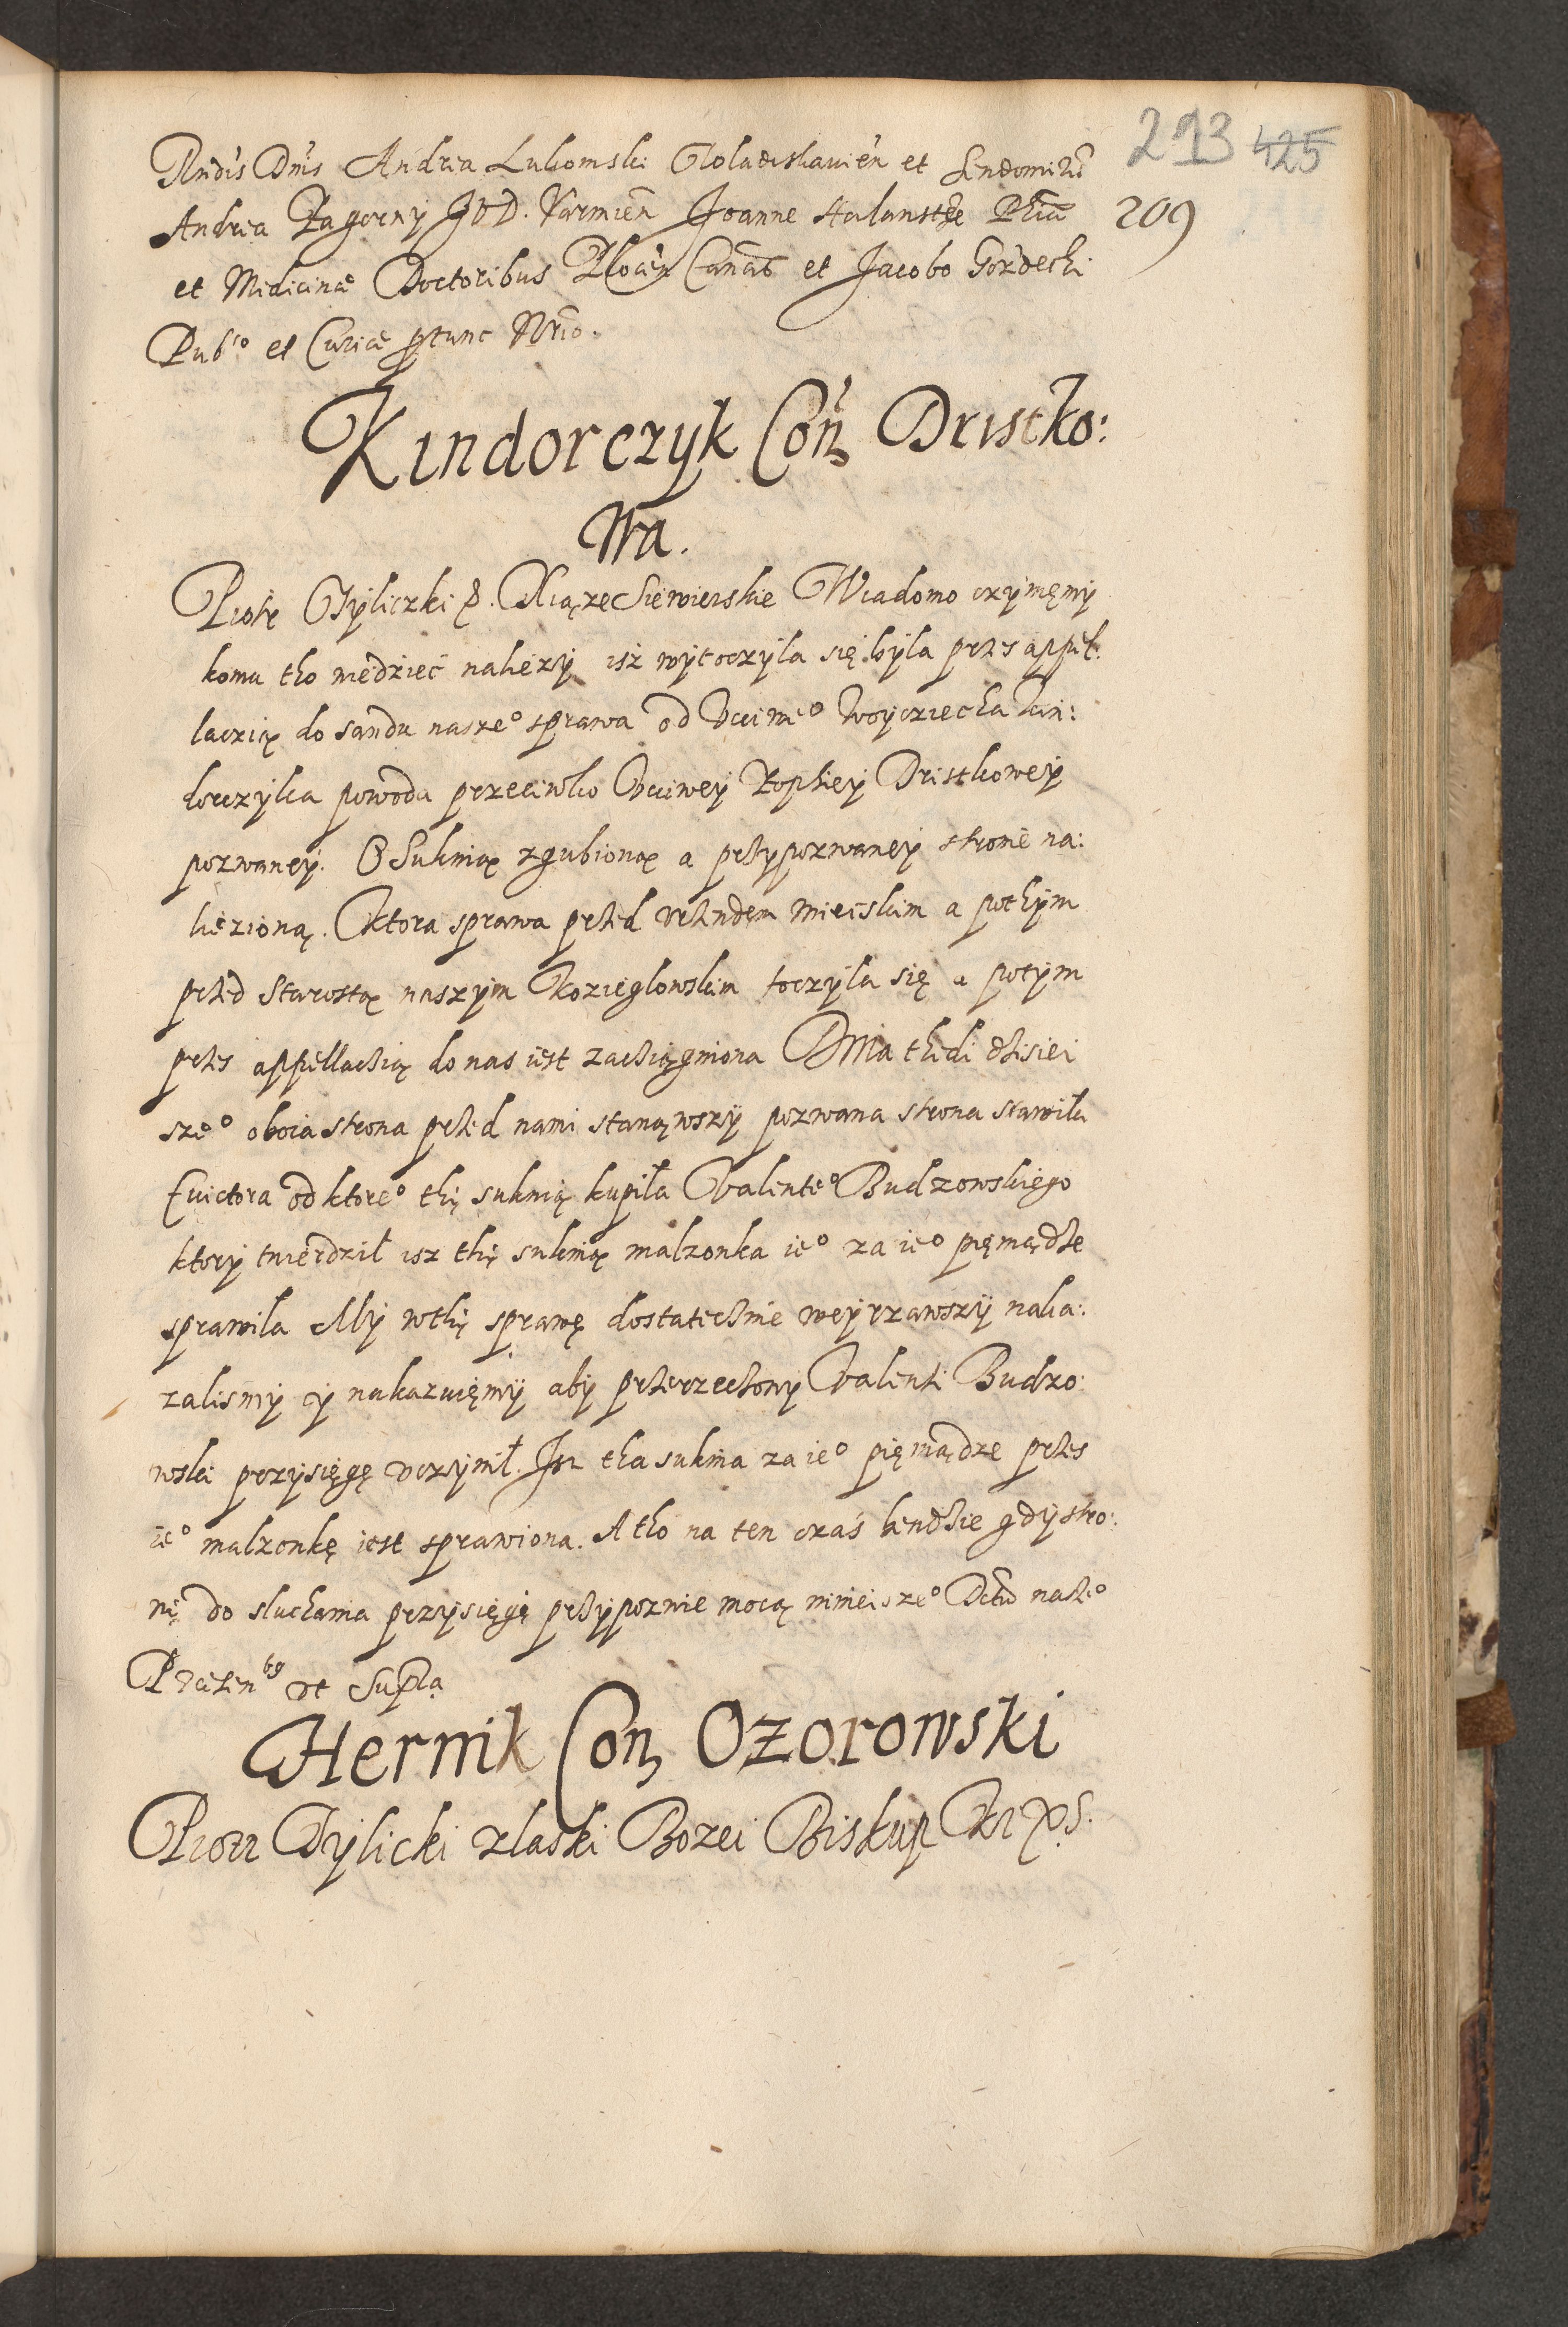 213 425
209
Rndis Dnis Andrea Lukomski Wladislauien et Sendomirien
Andrea Zagorny JVD. Varmien Joanne Halunski Phiae
et Medicinae Doctoribus Plocen Cancis et Jacobo Gordecki
Pubco et Curiae ptunc Nrio.
Kindorczyk Con Dristko:
wa.
Piotr Tyliczki P. Xiąze Siewierskie Wiadomo czynięmy
komu tho wiedzieć należy isz wytoczyla się byla przes appel:
laczią do sandu nasze° sprawa od Vcciwe° Woycziecha Kin:
dorczyka powoda przeciwko Vcciwey Zophiey Dristkowey
pozwaney. O Suknią zgubioną a przy pozwaney stronie na:
lezioną. Ktora sprawa przed vrzendem Mieiskim a pothym
przed Starostą naszym Kozieglowskim toczyla się a potym
przes appellaczią do nas iest zaciągniona Dnia thedi dzisiei
sze° oboia strona przed nami stanąwszy pozwana strona stawiła
Euictora od ktore° thę suknią kupiła Valente° Budzowskiego
ktory twierdził isz thę suknią malzonka ie° za ie° pięniądze
sprawila My wthę sprawę dostatecznie weyrzawszy naka:
zalismy y nakazuięmy aby przerzeczony Valenti Budzo:
wski przysięgę vczynił. Isz tha suknia za ie° pięniądze przes
ie° malzonkę iest sprawiona. A tho na ten czas bendzie gdy stro:
nę do sluchania przysięgi przypozwie mocą ninieisze° Dctu nasze°
Praesenbg vt Supra
Hernik Con Ozorowski
Piotr Tylicki zlaski Bozei Biskup Kr X S.